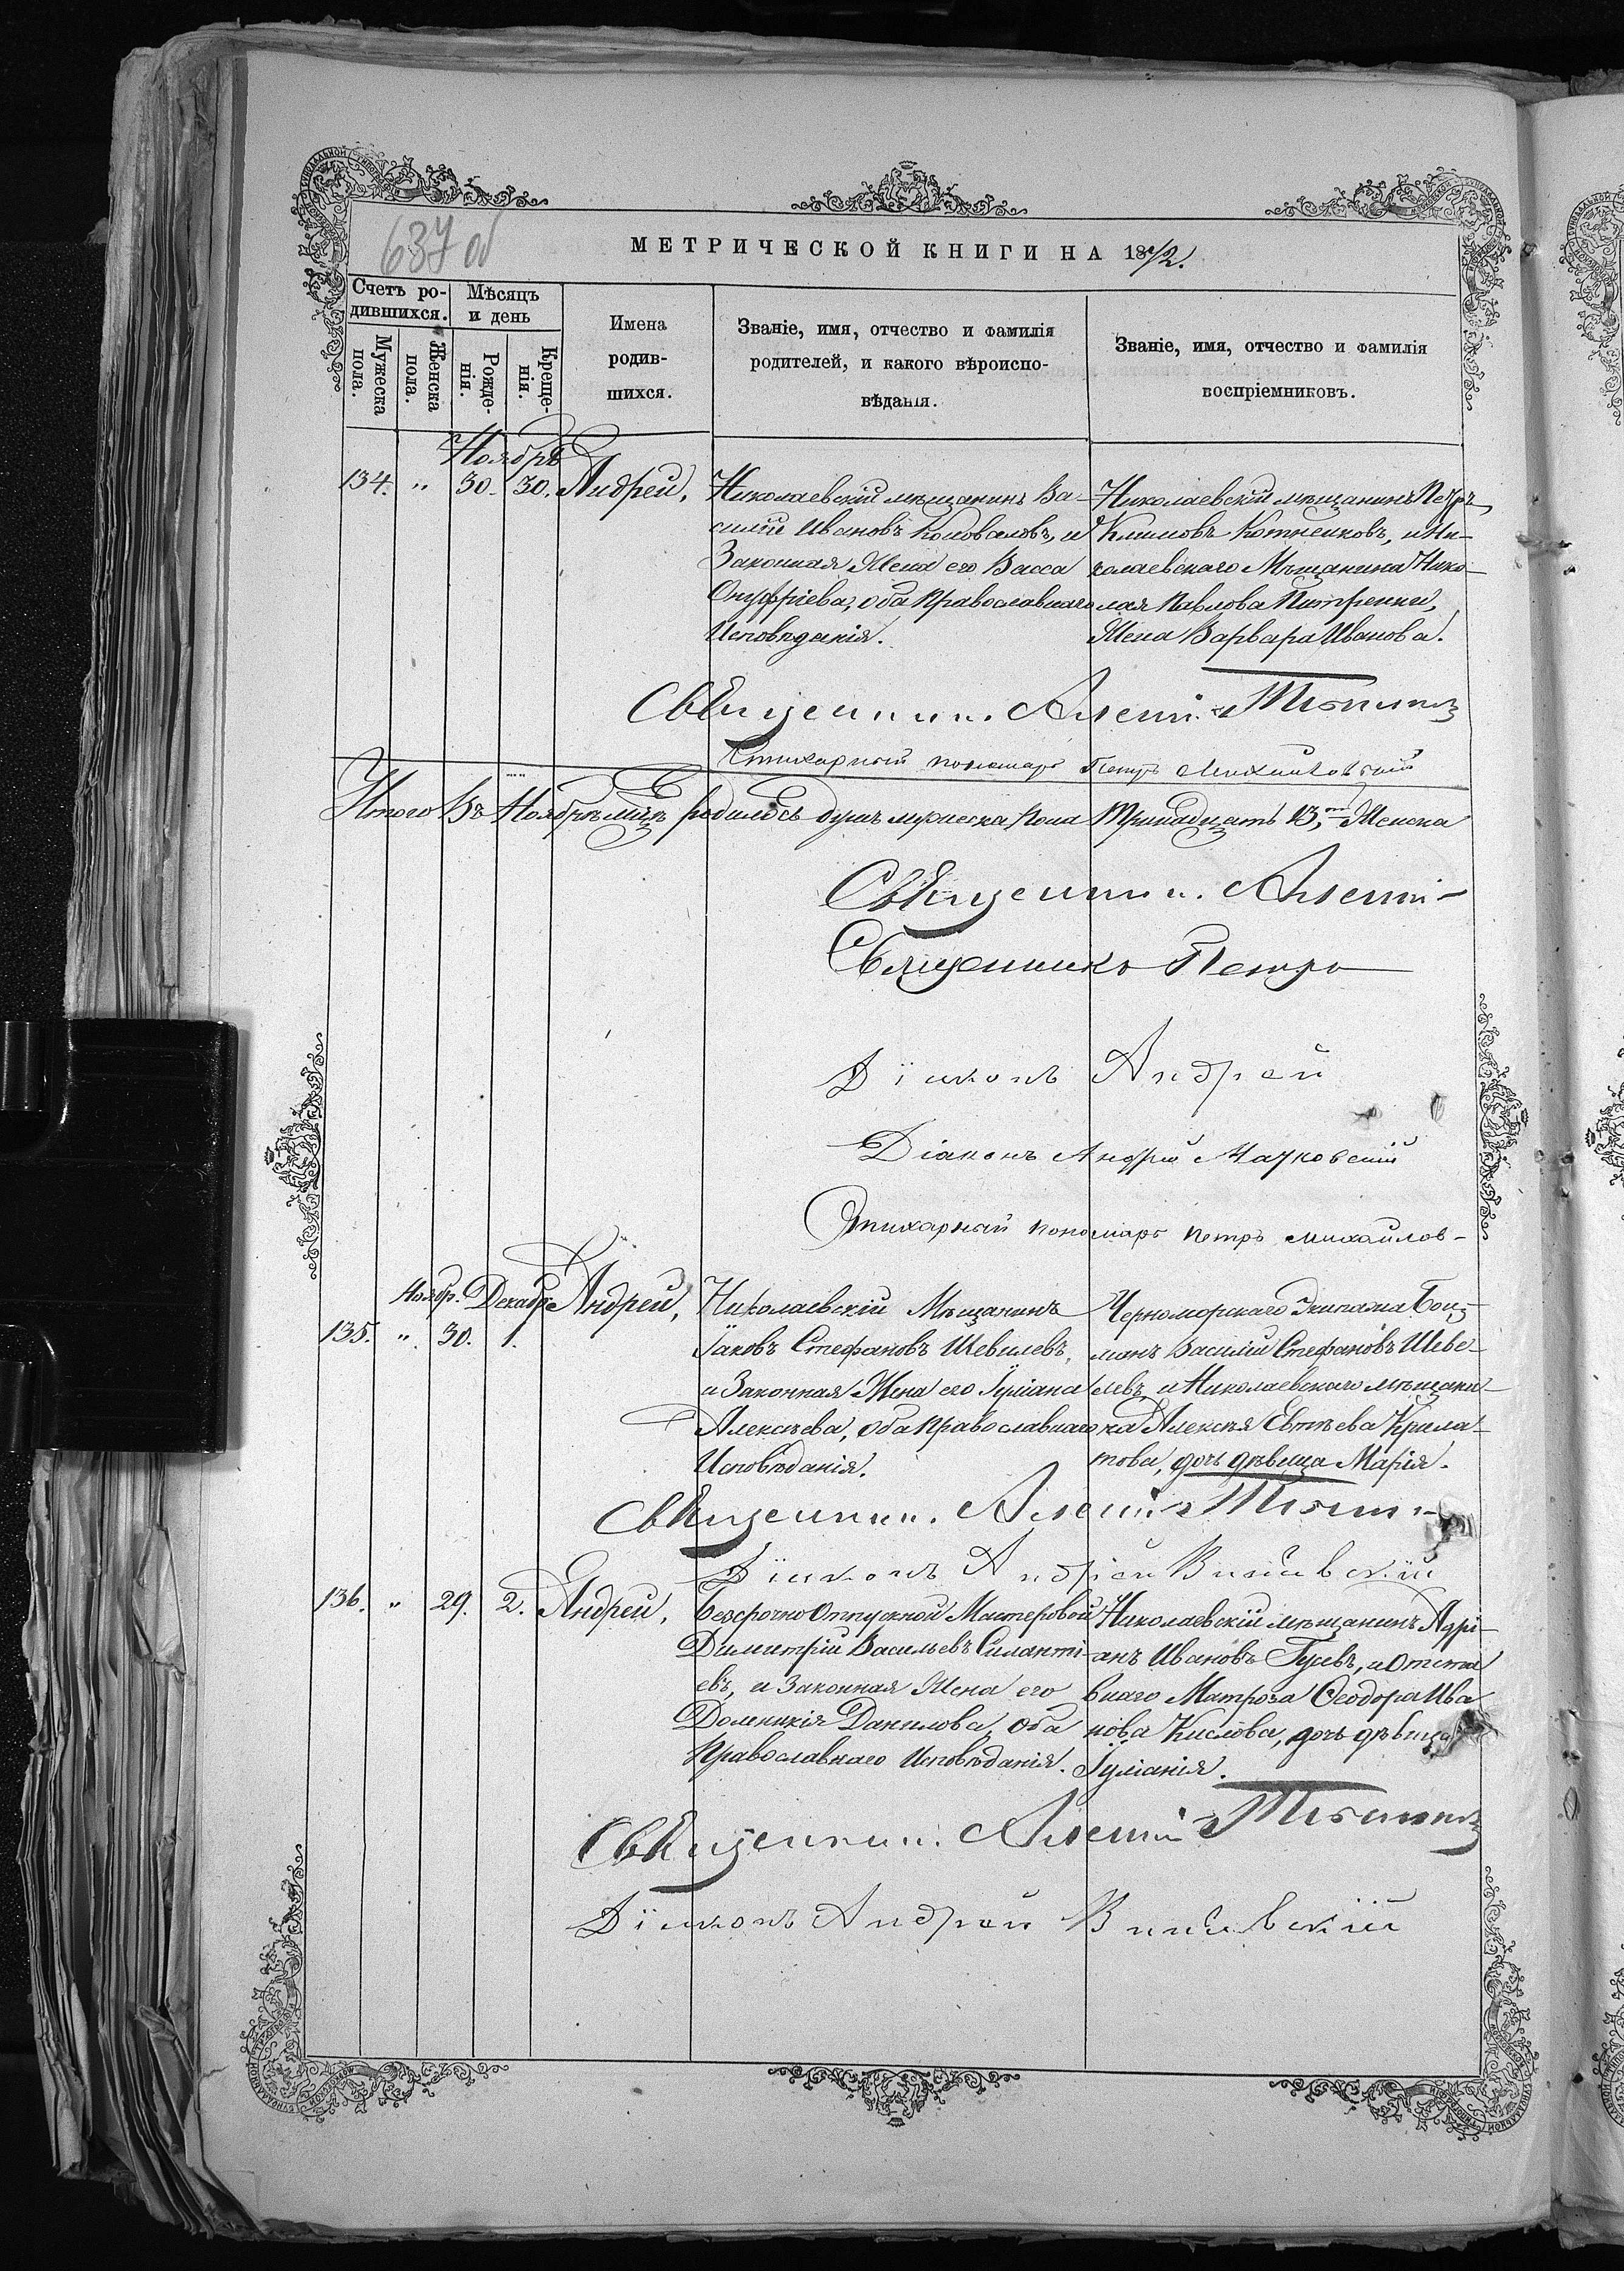 637 об
МЕТРИЧЕСКОЙ КНИГИ НА 1872.
Счетъ ро-
дившихся.
Мужеска
пола.
Женска
пола.
Мѣсяцъ
и день
Рожде-
нія.
Креще-
нія.
Имена
родив-
шихся.
Званіе, имя, отчество и фамилія
родителей, и какого вѣроиспо-
вѣданія.
Званіе, имя, отчество и фамилія
воспріемниковъ.
Ноябрь
134. " 30. 30. Андрей,
Николаевскій мѣщанинъ Ва-
силій Ивановъ Коноваловъ, и
Законная Жена его Васса
Онуфріева, оба Православнаго
Исповѣданія.
Николаевскій мѣщанинъ Петръ
Климовъ Котнешковъ, и Ни-
колаевскаго Мѣщанина Нико-
лая Павлова
Жена Варвара Иванова.
Священник. Алексій
Стихарный пономарь Петръ Михайловскій
Итого Въ Ноябрѣ мцѣ родилось душъ мужеска пола Тринадцать 13, Женска
Священник. Алексій
Священникъ Петръ
Діаконъ Андрей
Діаконъ Андрей Мацковскій
Стихарный пономарь Петръ Михайлов-
Ноябр. Декабр.
135. " 30. 1. Андрей,
Николаевскій Мѣщанинъ
Іаковъ Стефановъ Шевелевъ,
и Законная Жена его Іуліана
Алексѣева, оба Православнаго
Исповѣданія.
Черноморскаго Экипажа Боц-
манъ Василій Стефановъ Шеве-
левъ и Николаевскаго мѣщани-
на Алексѣя Евтѣева Крала-
това, дочь дѣвица Марія.
Священник. Алексій
Діаконъ Андрей
136. " 29. 2. Андрей,
Безсрочно Отпускной Мастеровой
Димитрій Васильевъ Силанті-
евъ, и Законная Жена его
Домникія Данилова, Оба
Православнаго Исповѣданія.
Николаевскій мѣщанинъ Адрі-
анъ Ивановъ Гусевъ, и Отста
внаго Матроза Ѳеодора Ива
нова Кислова, дочь дѣвица
Іуліанія.
Священник. Алексій
Діаконъ Андрей